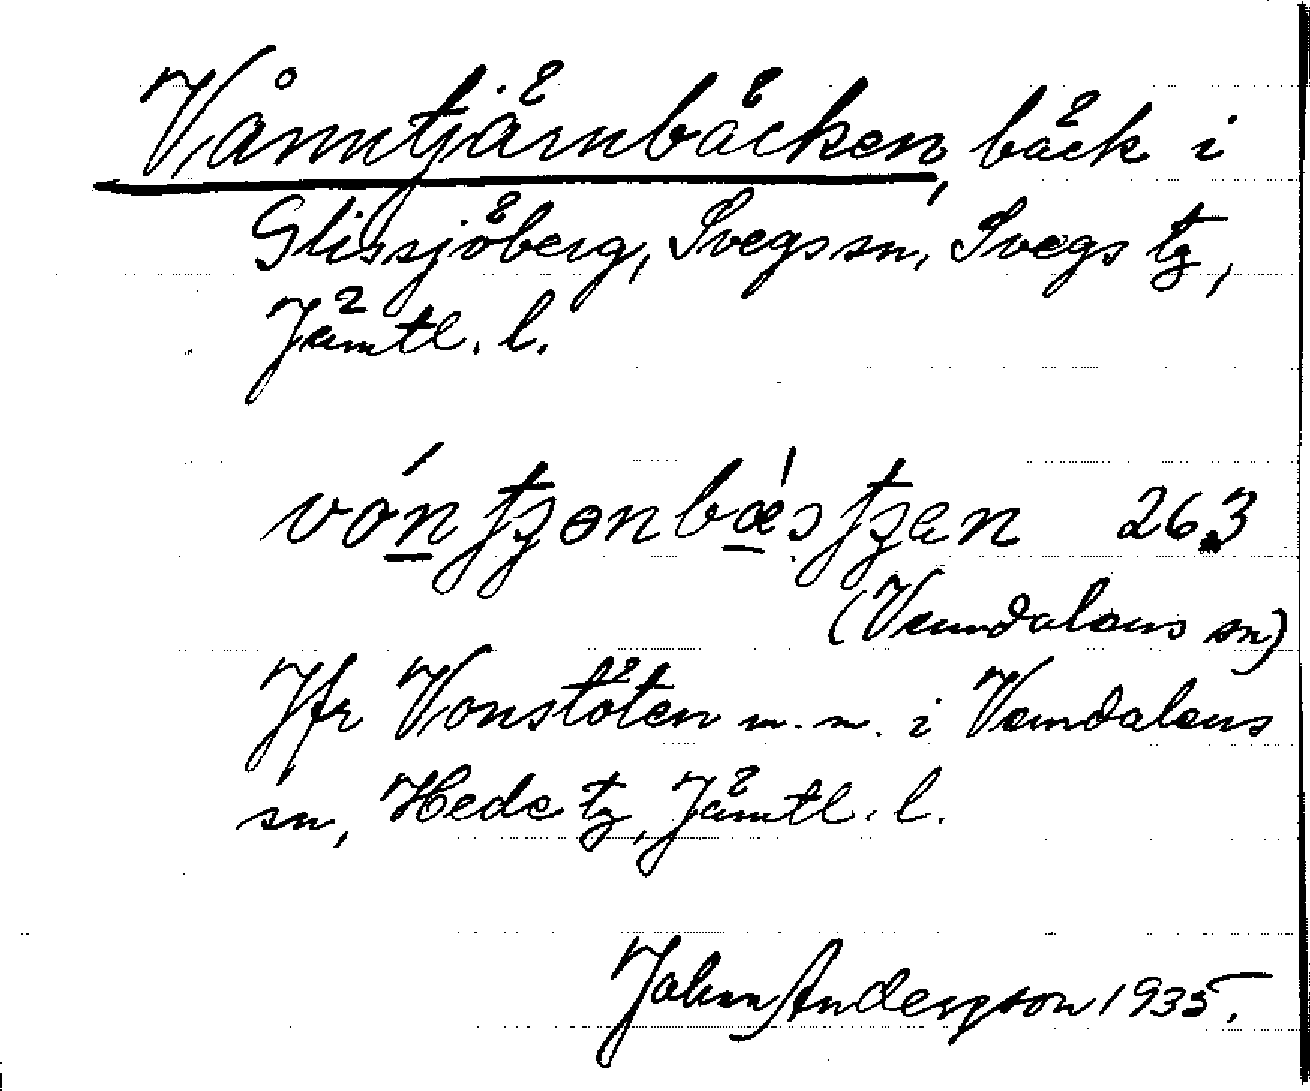 Vånntjärnbäcken, bäck i
Glissjöberg, Svegs sn, Svegs tg,
Jämtl. l.
263
(Vemdalens sn)
Jfr Vonstöten m. m. i Vemdalens
sn, Hede tg, Jämtl. l.
Johan Andersson 1935.